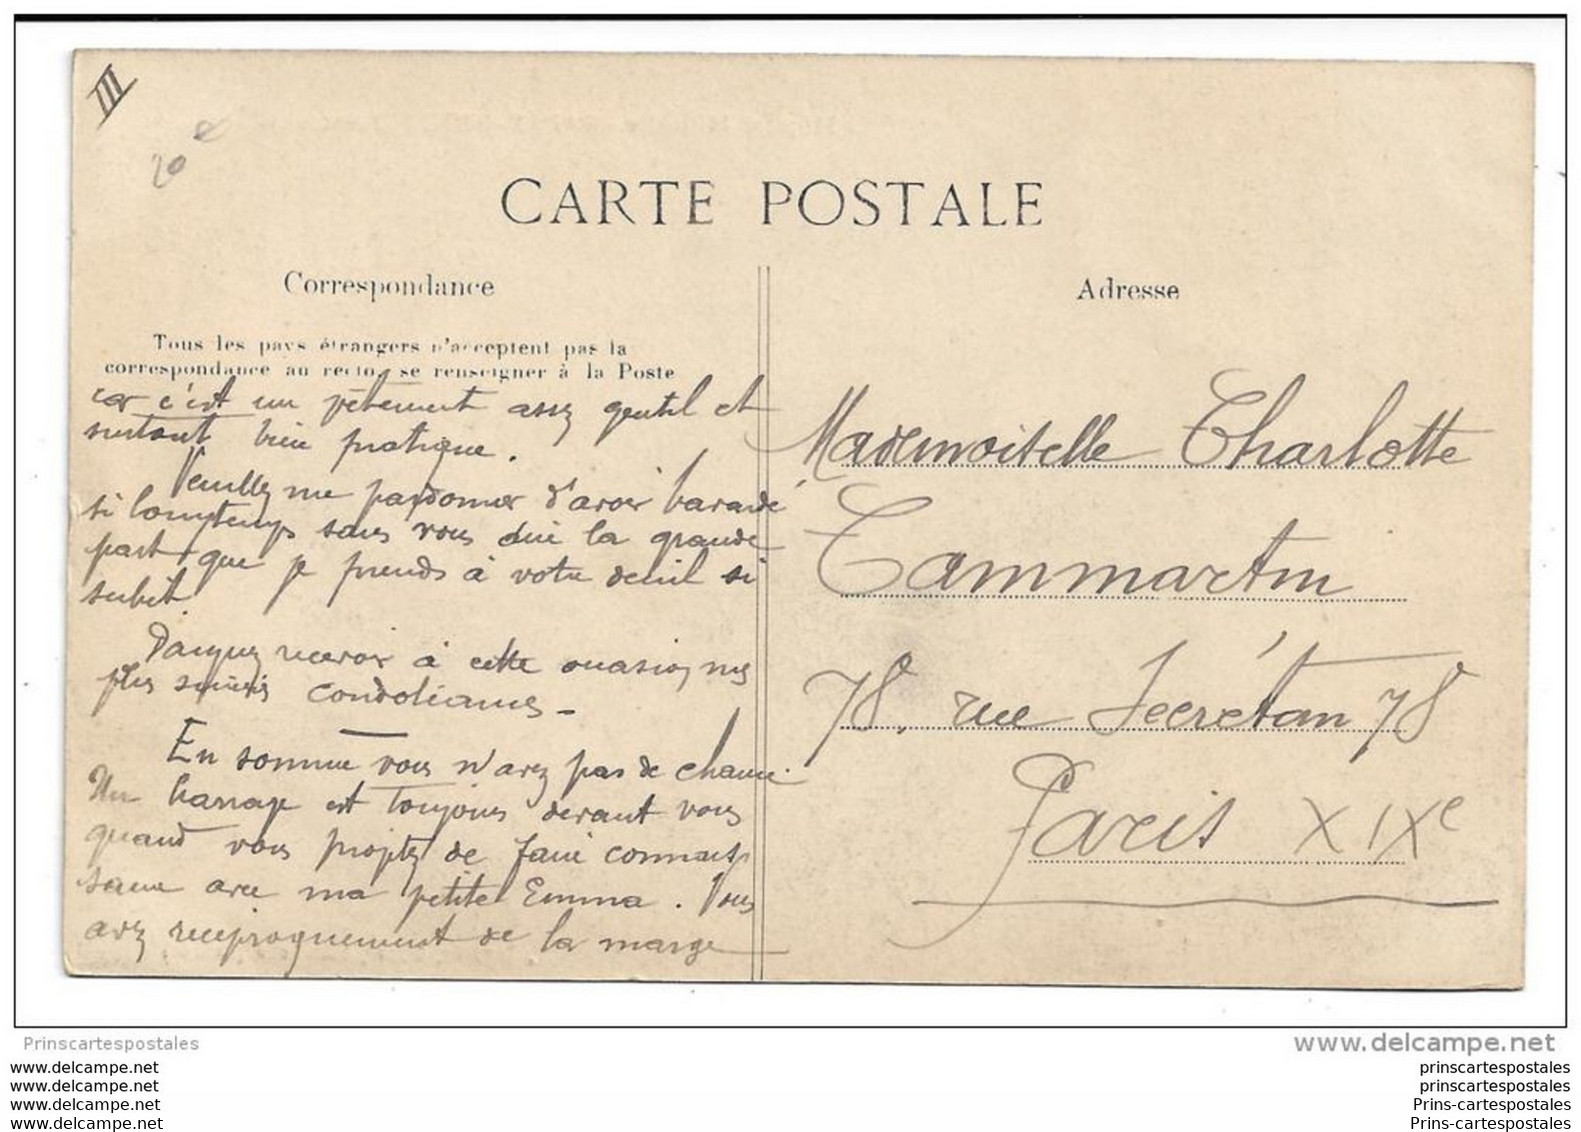 III
20 e
CARTE POSTALE
Correspondance
Tous les pays étrangers n'acceptent pas la
correspondance au recto, se renseigner à la Poste
car c'est un vêtement assez gentil et
surtout bien pratique.
Veuillez me pardonner d'avoir bavardé
si longtemps sans vous dire la grande
part que je prends à votre deuil si
subit.
Daignez recevoir à cette occasion mes
plus sincères condoléances -
En somme vous n'avez pas de chance.
Un barrage est toujours devant vous
quand vous projetez de faire connais
sance avec ma petite Emma. Vous
avez réciproquement de la marge
Adresse
Mademoiselle Charlotte
Cammartin
78, rue Secrétan 78
Paris XIXe
Prinscartespostales
www.delcampe.net
www.delcampe.net
www.delcampe.net
www.delcampe.net
www.delcampe.net
prinscartespostales
prinscartespostales
Prins-cartespostales
Prins-cartespostales